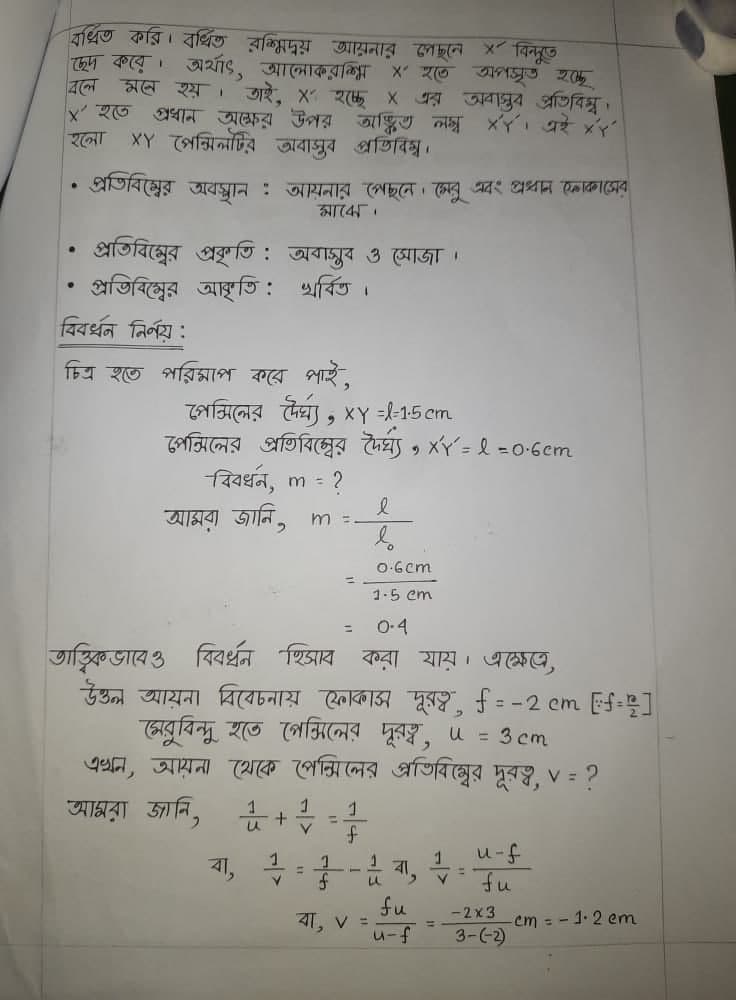 বর্ধিত করি। বর্ধিত রশ্মিদ্বয় আয়নার পেছনে X′ বিন্দুতে
ছেদ করে। অর্থাৎ, আলোকরশ্মি X′ হতে অপসৃত হচ্ছে
বলে মনে হয়। তাই, X′ হচ্ছে X এর অবাস্তব প্রতিবিম্ব।
X′ হতে প্রধান অক্ষের উপর অঙ্কিত লম্ব X′Y′। এই X′Y′
হলো XY পেন্সিলটির অবাস্তব প্রতিবিম্ব।
• প্রতিবিম্বের অবস্থান : আয়নার পেছনে। মেরু এবং প্রধান ফোকাসের
মাঝে।
• প্রতিবিম্বের প্রকৃতি : অবাস্তব ও সোজা।
• প্রতিবিম্বের আকৃতি : খর্বিত।
বিবর্ধন নির্ণয় :
চিত্র হতে পরিমাপ করে পাই,
পেন্সিলের দৈর্ঘ্য, XY = l = 1.5 cm
পেন্সিলের প্রতিবিম্বের দৈর্ঘ্য, X′Y′ = l = 0.6 cm
বিবর্ধন, m = ?
আমরা জানি, m = l/l₀
= 0.6 cm/1.5 cm
= 0.4
তাত্ত্বিকভাবেও বিবর্ধন হিসাব করা যায়। এক্ষেত্রে,
উত্তল আয়না বিবেচনায় ফোকাস দূরত্ব, f = -2 cm [∵ f = r/2]
মেরুবিন্দু হতে পেন্সিলের দূরত্ব, u = 3 cm
এখন, আয়না থেকে পেন্সিলের প্রতিবিম্বের দূরত্ব, v = ?
আমরা জানি, 1/u + 1/v = 1/f
বা, 1/v = 1/f - 1/u বা, 1/v = u-f/fu
বা, v = fu/u-f = -2×3/3-(-2) cm = -1.2 cm